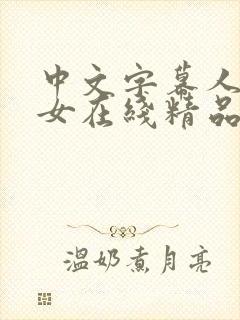 中文字幕人
女在线精品
温奶煮月亮